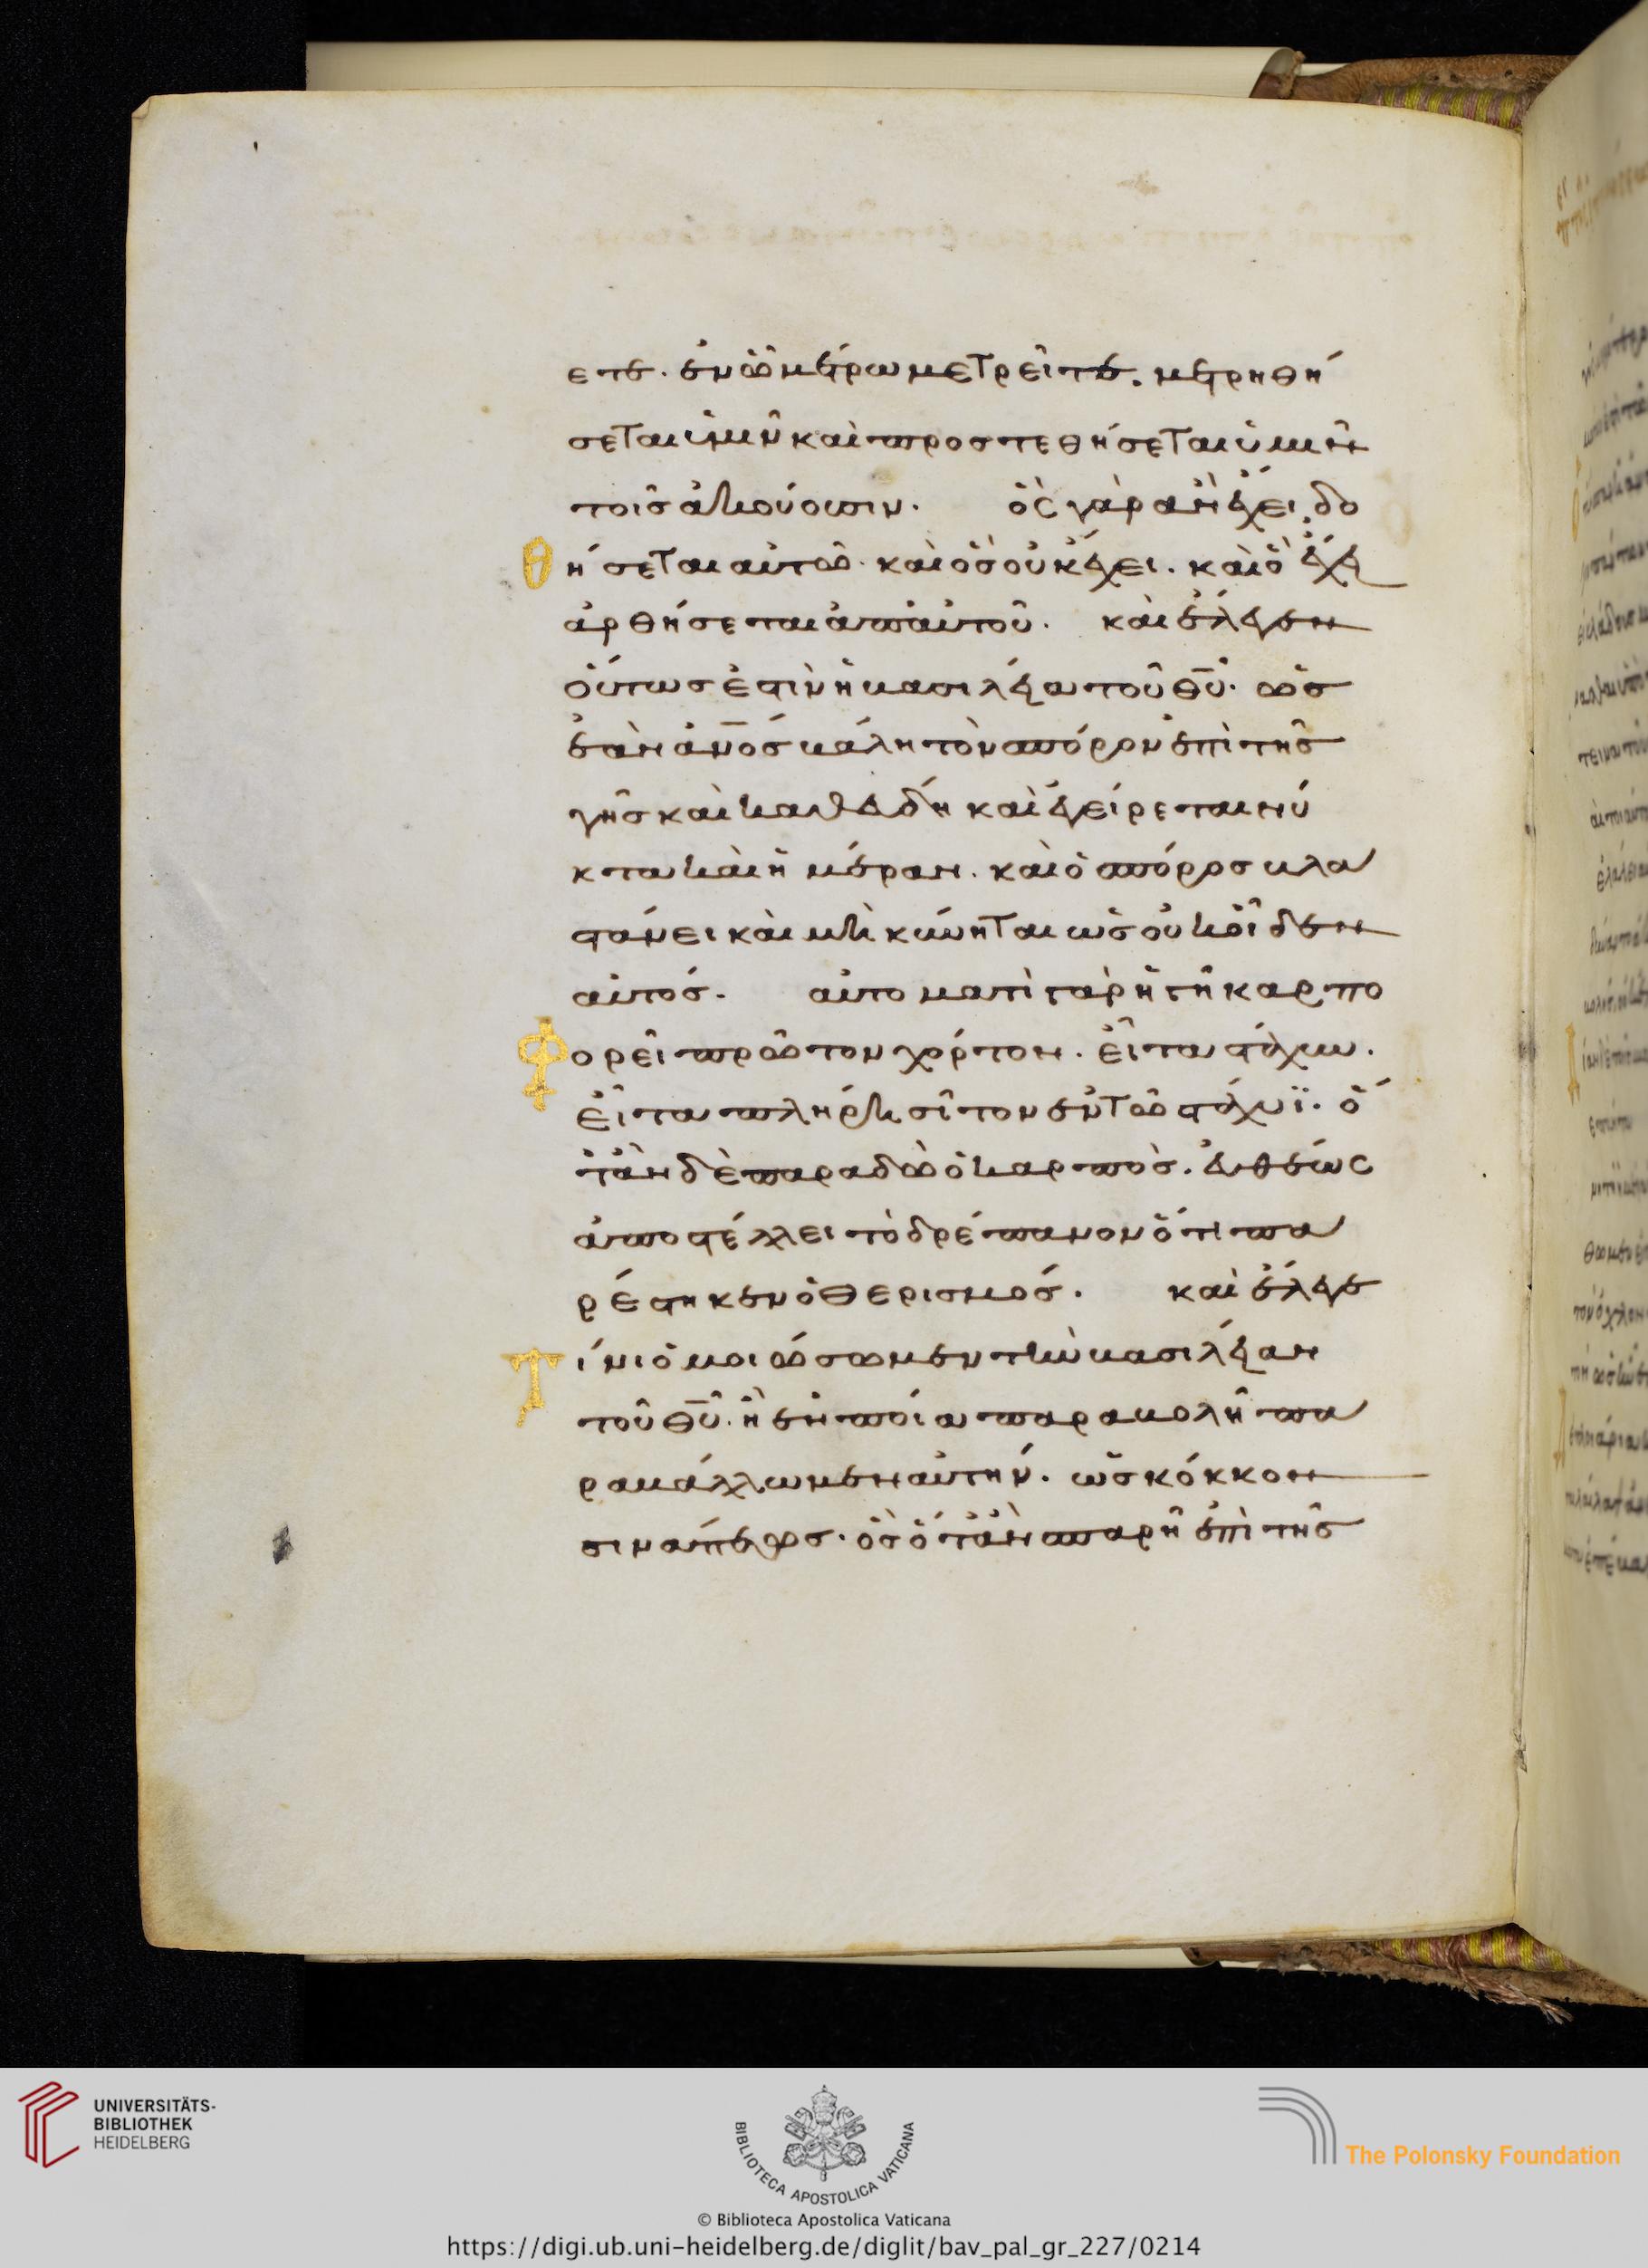 ετε. ἐν ᾧ μέτρω μετρεῖτε. μετρηθή
σεται ὑμῖν καὶ προστεθήσεται ὑμῖν
τοῖς ἀκούουσιν. ὃς γὰρ ἂν ἔχει, δο
θήσεται αὐτῶ. καὶ ὃς οὐκ ἔχει. καὶ ὃ ἔχει
ἀρθήσεται ἀπ' αὐτοῦ. καὶ ἔλεγεν
οὕτως ἐστὶν ἡ βασιλεία τοῦ θ̅υ̅. ὡς
ἐὰν ἀ̅ν̅ο̅ς βάλη τὸν σπόρον ἐπὶ τῆς
γῆς καὶ καθεύδη καὶ ἐγείρεται νύ
κτα καὶ ἡμέραν. καὶ ὁ σπόρος βλα
στάνει καὶ μηκύνηται ὡς οὐκ οἶδεν
αὐτός. αὐτοματὶ γὰρ ἡ γῆ καρπο
φορεῖ πρῶτον χόρτον. εἶτα στάχυν.
εἶτα πλήρη σῖτον ἐν τῶ στάχυϊ. ὅ
τὰν δὲ παραδῶ ὁ καρπὸς. εὐθέως
ἀποστέλλει τὸ δρέπανον ὅτι πα
ρέστηκεν ὁ θερισμός. καὶ ἔλεγε
Τίνι ὁμοιώσωμεν τὴν βασιλείαν
τοῦ θ̅υ̅. ἢ ἐν ποία παραβολῆ πα
ραβάλλωμεν αὐτήν. ὡς κόκκον
σινάπεως. ὃς ὅταν σπαρῆ ἐπὶ τῆς
UNIVERSITÄTS-
BIBLIOTHEK
HEIDELBERG
BIBLIOTECA APOSTOLICA VATICANA
The Polonsky Foundation
© Biblioteca Apostolica Vaticana
https://digi.ub.uni-heidelberg.de/diglit/bav_pal_gr_227/0214